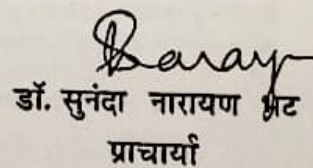 डॉ. सुनंदा नारायण भट
प्राचार्या